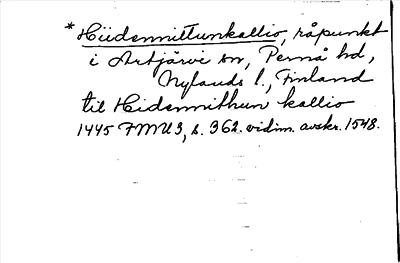 * Hiidenmittunkallio, råpunkt
i Artjärvi sn, Pernå hd,
Nylands l., Finland
til Hidenmithun kallio
1445 FMU 3, s. 362. vidim. avskr. 1548.